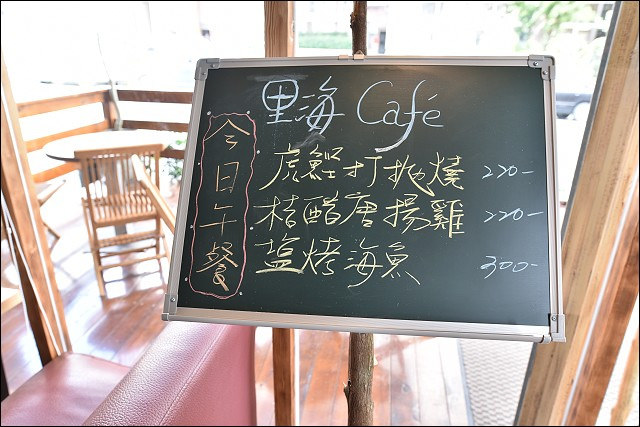 里海 Café
今日午餐
虎鰹打拋燒 220-
桔醋唐揚雞 220-
塩烤海魚 300-